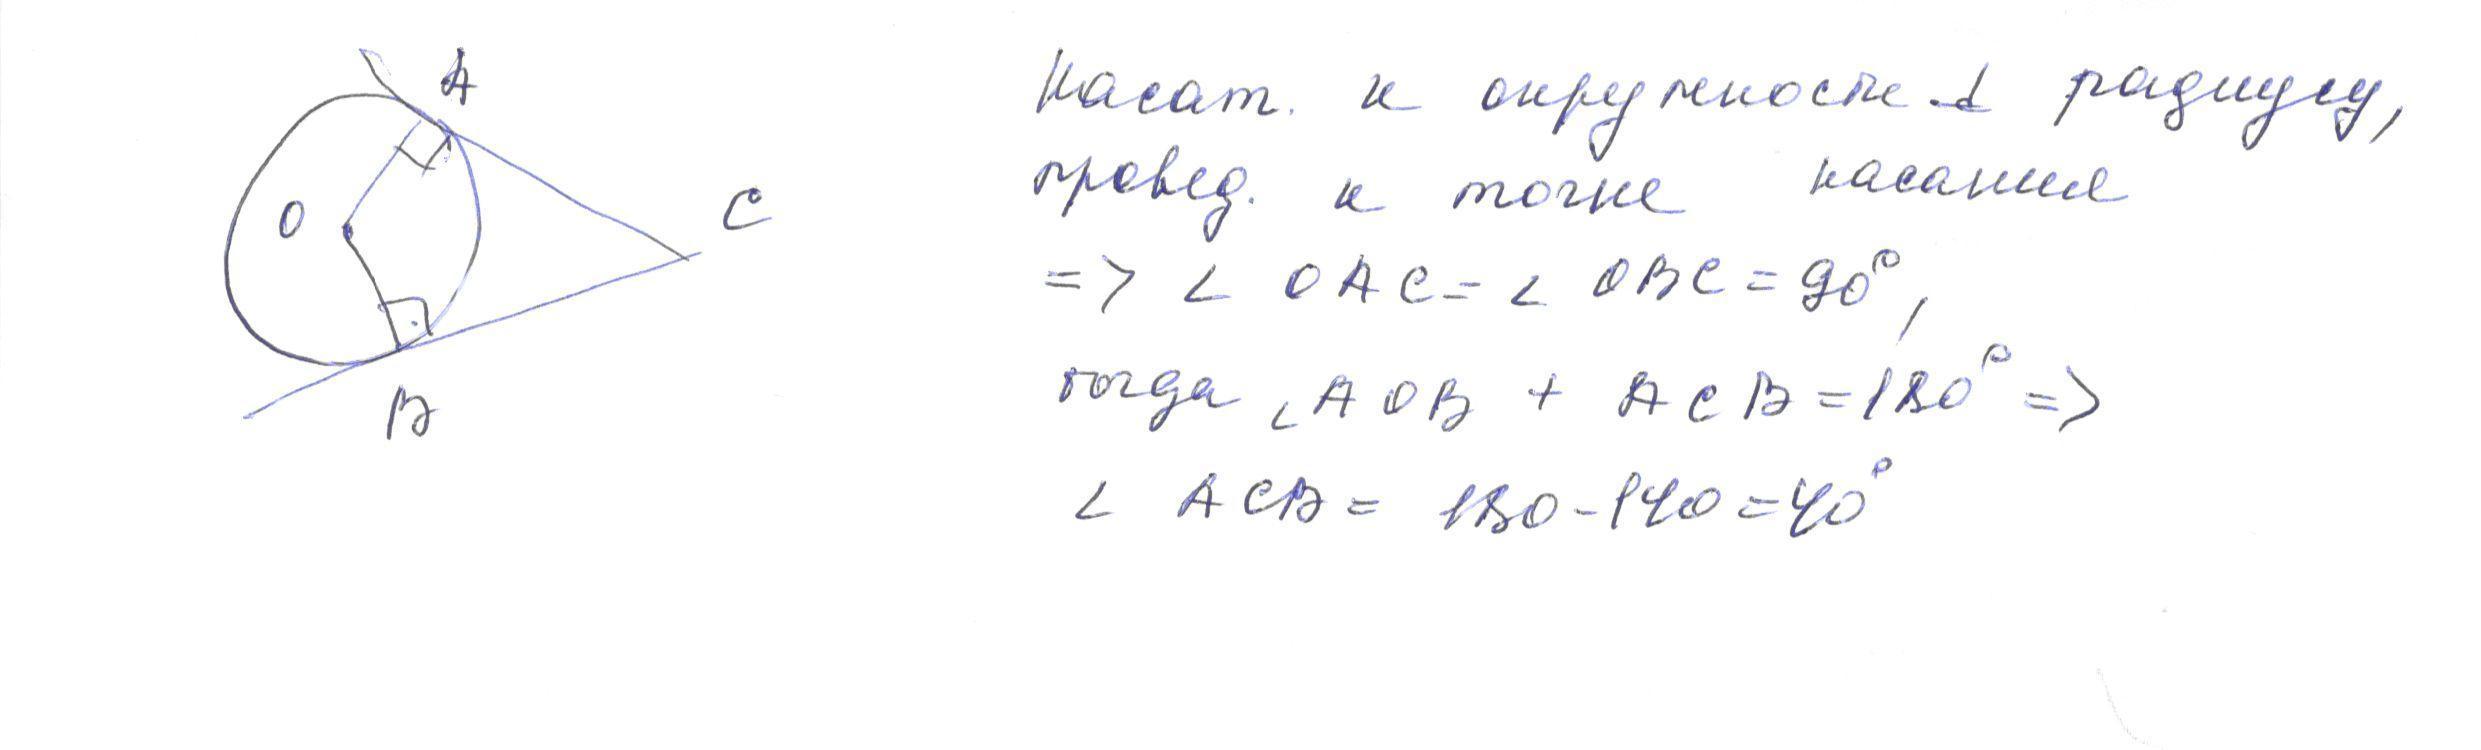 A
O
C
B
Касат. к окружности ⊥ радиусу,
провед. к точке касания
=> ∠ OAC = ∠ OBC = 90°,
тогда ∠AOB + ACB = 180° =>
∠ ACB = 180 - 140 = 40°